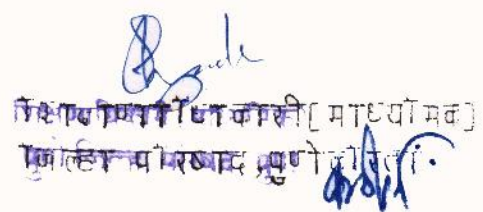 शिक्षणाधिकारी[माध्यमिक]
जिल्हा परिषद,पुणे करिता